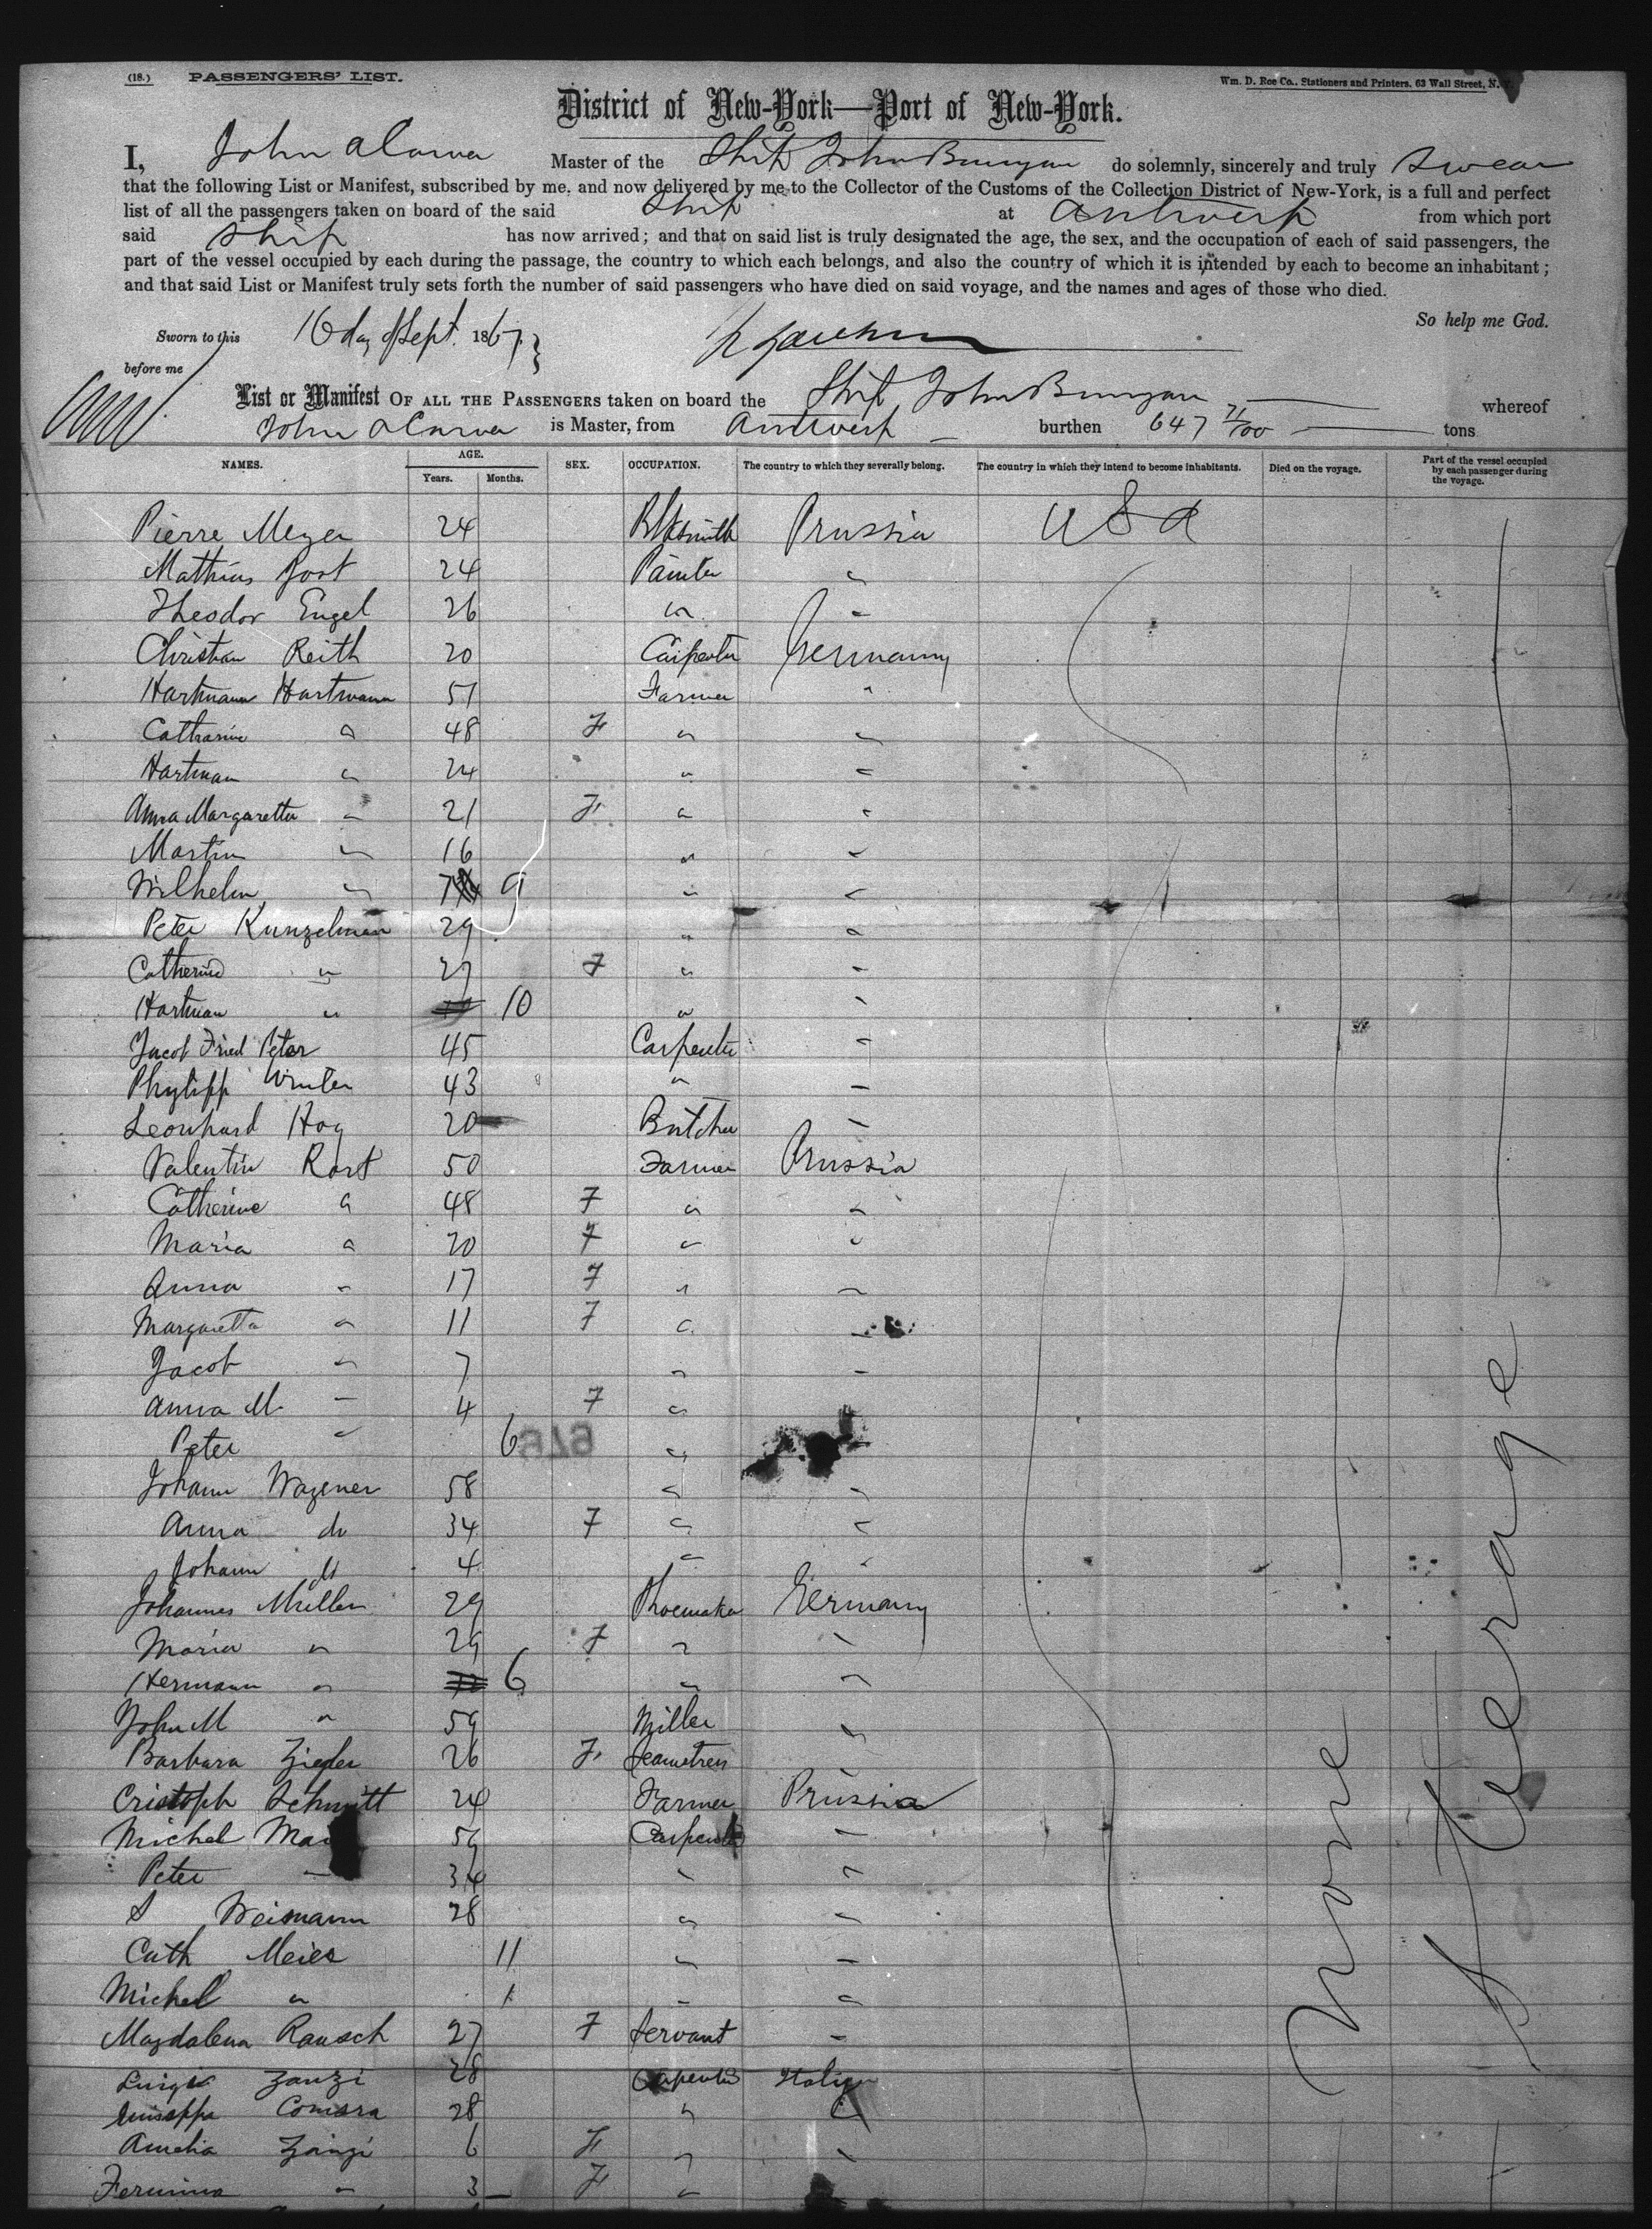 (18.) PASSENGERS' LIST.
Wm. D. Roe Co., Stationers and Printers, 63 Wall Street, N.
District of New-York—Port of New-York.
I, John Master of the Ship John Bunyan do solemnly, sincerely and truly swear
that the following List or Manifest, subscribed by me, and now delivered by me to the Collector of the Customs of the Collection District of New-York, is a full and perfect
list of all the passengers taken on board of the said Ship at Antwerp from which port
said Ship has now arrived; and that on said list is truly designated the age, the sex, and the occupation of each of said passengers, the
part of the vessel occupied by each during the passage, the country to which each belongs, and also the country of which it is intended by each to become an inhabitant;
and that said List or Manifest truly sets forth the number of said passengers who have died on said voyage, and the names and ages of those who died.
So help me God.
Sworn to this 16 day of Sept. 1867
before me
List or Manifest OF ALL THE PASSENGERS taken on board the Ship John Bunyan whereof
John is Master, from Antwerp burthen 647 71/100 tons
NAMES. AGE. Years. Months. SEX. OCCUPATION. The country to which they severally belong. The country in which they intend to become inhabitants. Died on the voyage. Part of the vessel occupied by each passenger during the voyage.
Pierre Meyer 24 Blksmith Prussia USA
Mathias Jost 24 Painter "
Theodor Engel 26 " "
Christian Reith 20 Carpenter Germany
Hartmann Hartmann 51 Farmer "
Catharine " 48 F " "
Hartman " 24 " "
Anna Margaretta " 21 F " "
Martin " 16 " "
Wilhelm " 9 " "
Peter Kunzelman 29 " "
Catherine " 27 F " "
Hartman " 10 " "
Jacob Fried Peter 45 Carpenter "
Phylipp Winter 43 " "
Leonhard Hog 20 Butcher "
Valentin Rost 50 Farmer Prussia
Catherine " 48 F " "
Maria " 20 F " "
Anna " 17 F " "
Margaretta " 11 F " "
Jacob " 7 " "
Anna M. " 4 F "
Peter " 6 " "
Johann Wagener 58 " "
Anna do 34 F " "
Johann do 4 " "
Johannes Muller 29 Shoemaker Germany
Maria " 29 F " "
Hermann " 6 " "
John M " 59 Miller "
Barbara Ziegler 26 F Seamstress "
Cristoph Schmitt 24 Farmer Prussia
Michel 59 Carpenter "
Peter " 34 " "
S Weismann 28 " "
Cath Meier 11 " "
Michel " 1 " "
Magdalena Rausch 27 F Servant "
Luigi Zanzi 28 Carpenter Italy
Comsra 28 " "
Amelia Zanzi 6 F " "
" 3 F "
None
Steerage